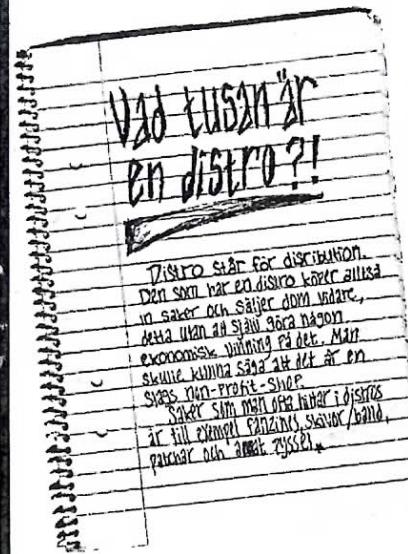 Vad tusan är
en distro?!
Distro står för distribution.
Den som har en distro köper alltså
in saker och säljer dom vidare,
detta utan att själv göra någon
ekonomisk vinning på det. Man
skulle kunna säga att det är en
slags non-profit-shop.
Saker som man ofta hittar i distros
är till exempel fanzines, skivor/band,
patchar och annat pyssel.